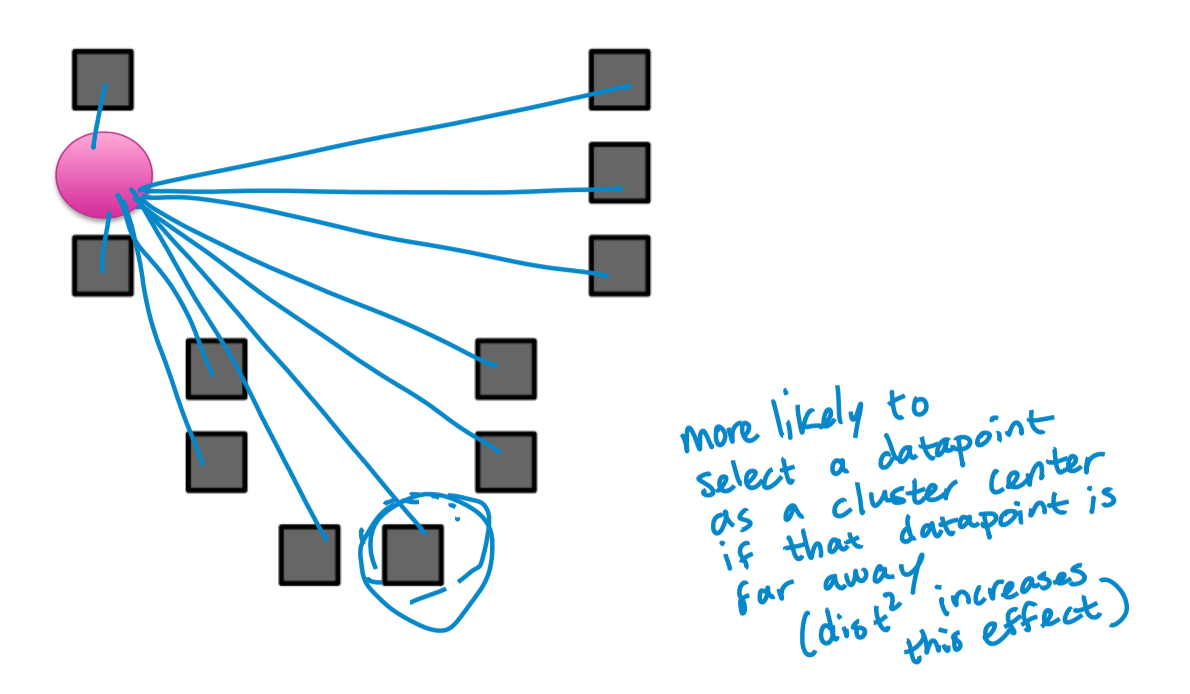 more likely to
select a datapoint
as a cluster center
if that datapoint is
far away
(dist² increases
this effect)